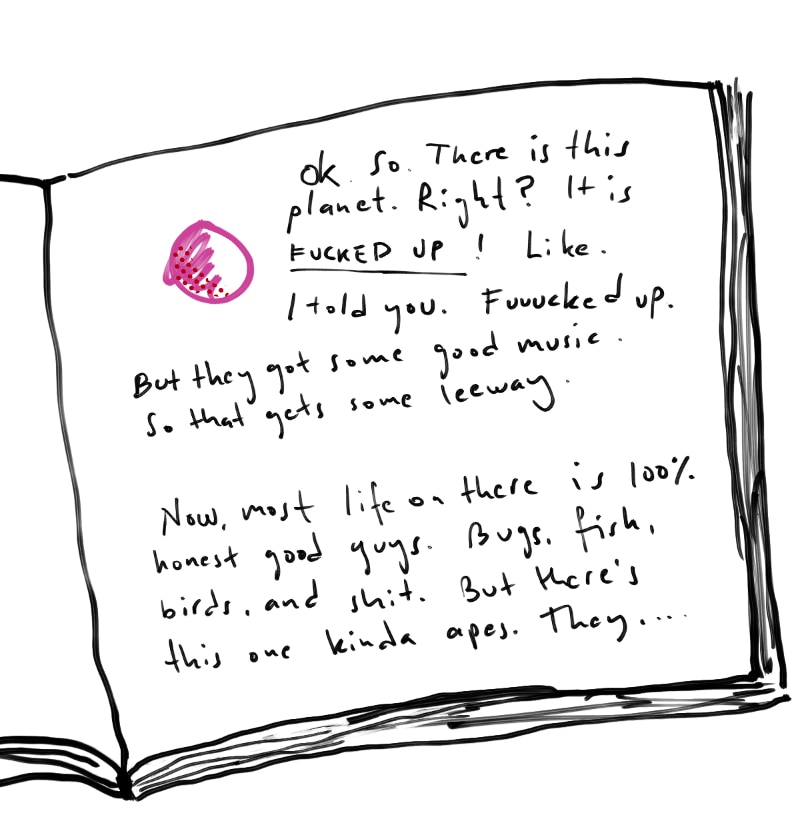 ok. So. There is this
planet. Right? It is
FUCKED UP! Like.
I told you. Fuuucked up.
But they got some good music.
So that gets some leeway.
Now, most life on there is 100%
honest good guys. Bugs, fish,
birds, and shit. But there's
this one kinda apes. They....